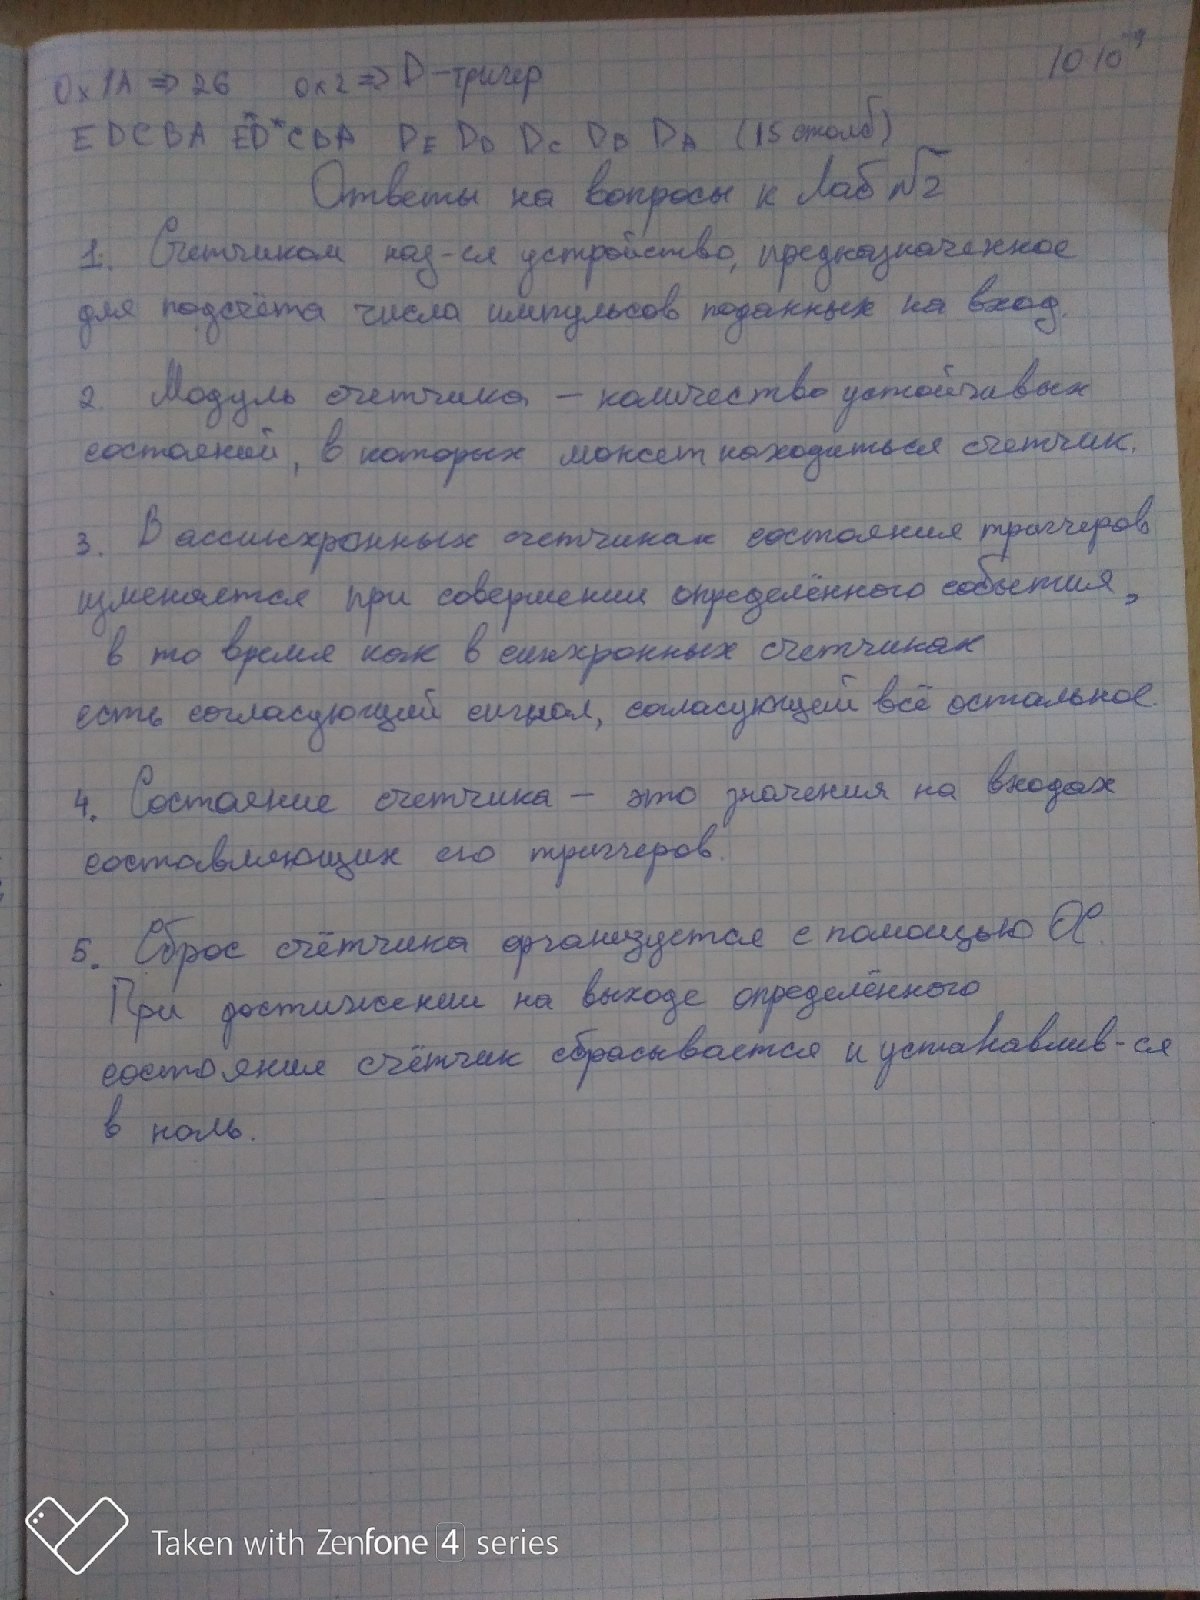 10 10⁻⁹
0x1A => 26 0x2 => D-тригер
EDCBA E*D*CBA D_E D_D D_C D_B D_A (15 столб)
Ответы на вопросы к Лаб №2
1. Счетчиком наз-ся устройство, предназначенное
для подсчёта числа импульсов поданных на вход.
2. Модуль счетчика – количество устойчивых
состояний, в которых может находиться счетчик.
3. В ассинхронных счетчиках состояния триггеров
изменяется при совершении определённого события,
в то время как в синхронных счетчиках
есть согласующий сигнал, согласующий всё остальное.
4. Состояние счетчика – это значения на входах
составляющих его триггеров.
5. Сброс счётчика организуется с помощью ОС.
При достижении на выходе определённого
состояния счётчик сбрасывается и устанавлив-ся
в ноль.
Taken with Zenfone 4 series